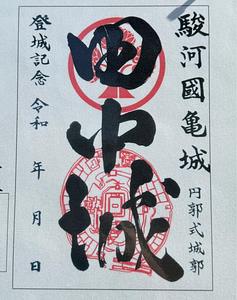 駿河國亀城
円郭式城郭
田中城
登城記念 令和 年 月 日